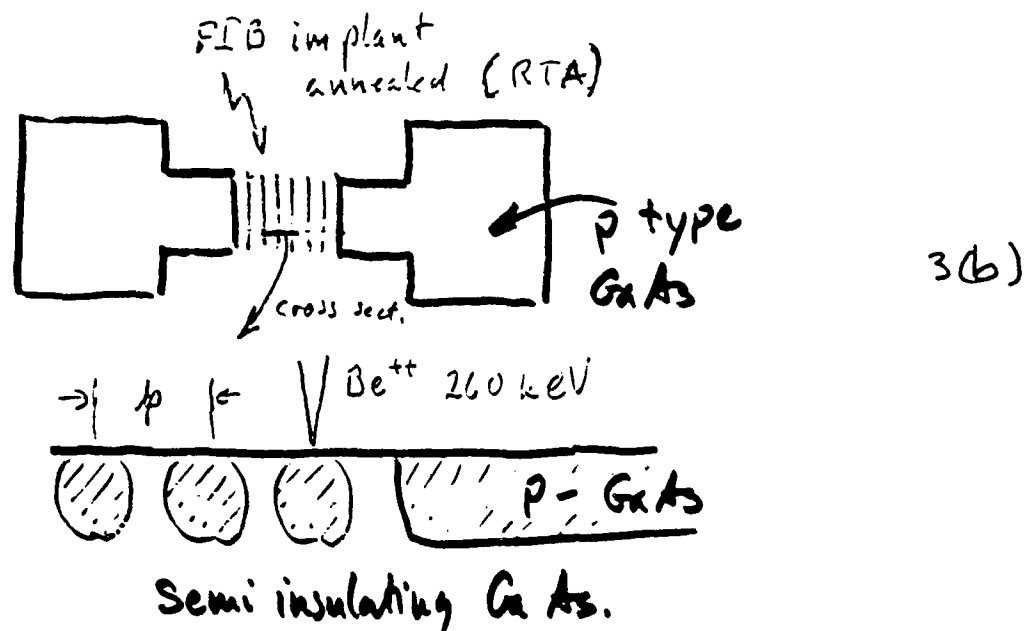 FIB implant
annealed (RTA)
p type
GaAs
3(b)
cross sect.
p
Be++ 260 keV
p - GaAs
Semi insulating GaAs.